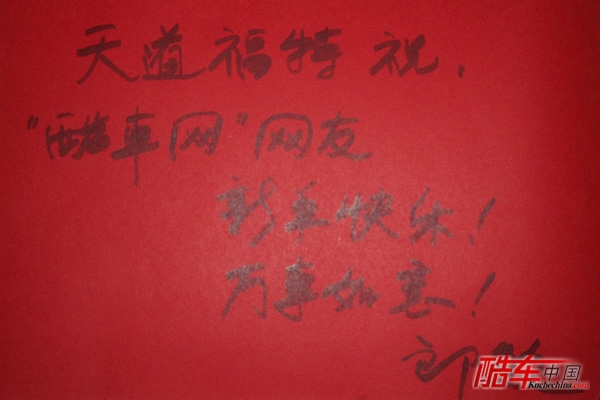 天道福特 祝,
"酷车网"网友
新年快乐!
万事如意!
郎
酷车中国
Kuchechina.com